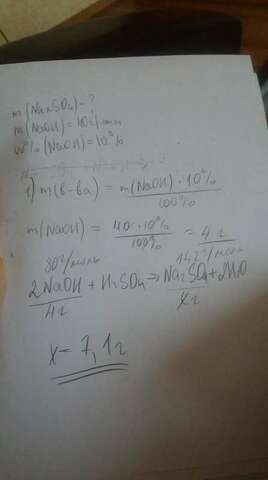 m(Na₂SO₄) - ?
m(NaOH) = 
w%(NaOH) = 10%
1) m(в-ва) = m(NaOH) · 10% / 100%
m(NaOH) = 40 · 10% / 100% = 4 г
80 г/моль 142 г/моль
2NaOH + H₂SO₄ → Na₂SO₄ + 2H₂O
4г xг
x = 7,1 г